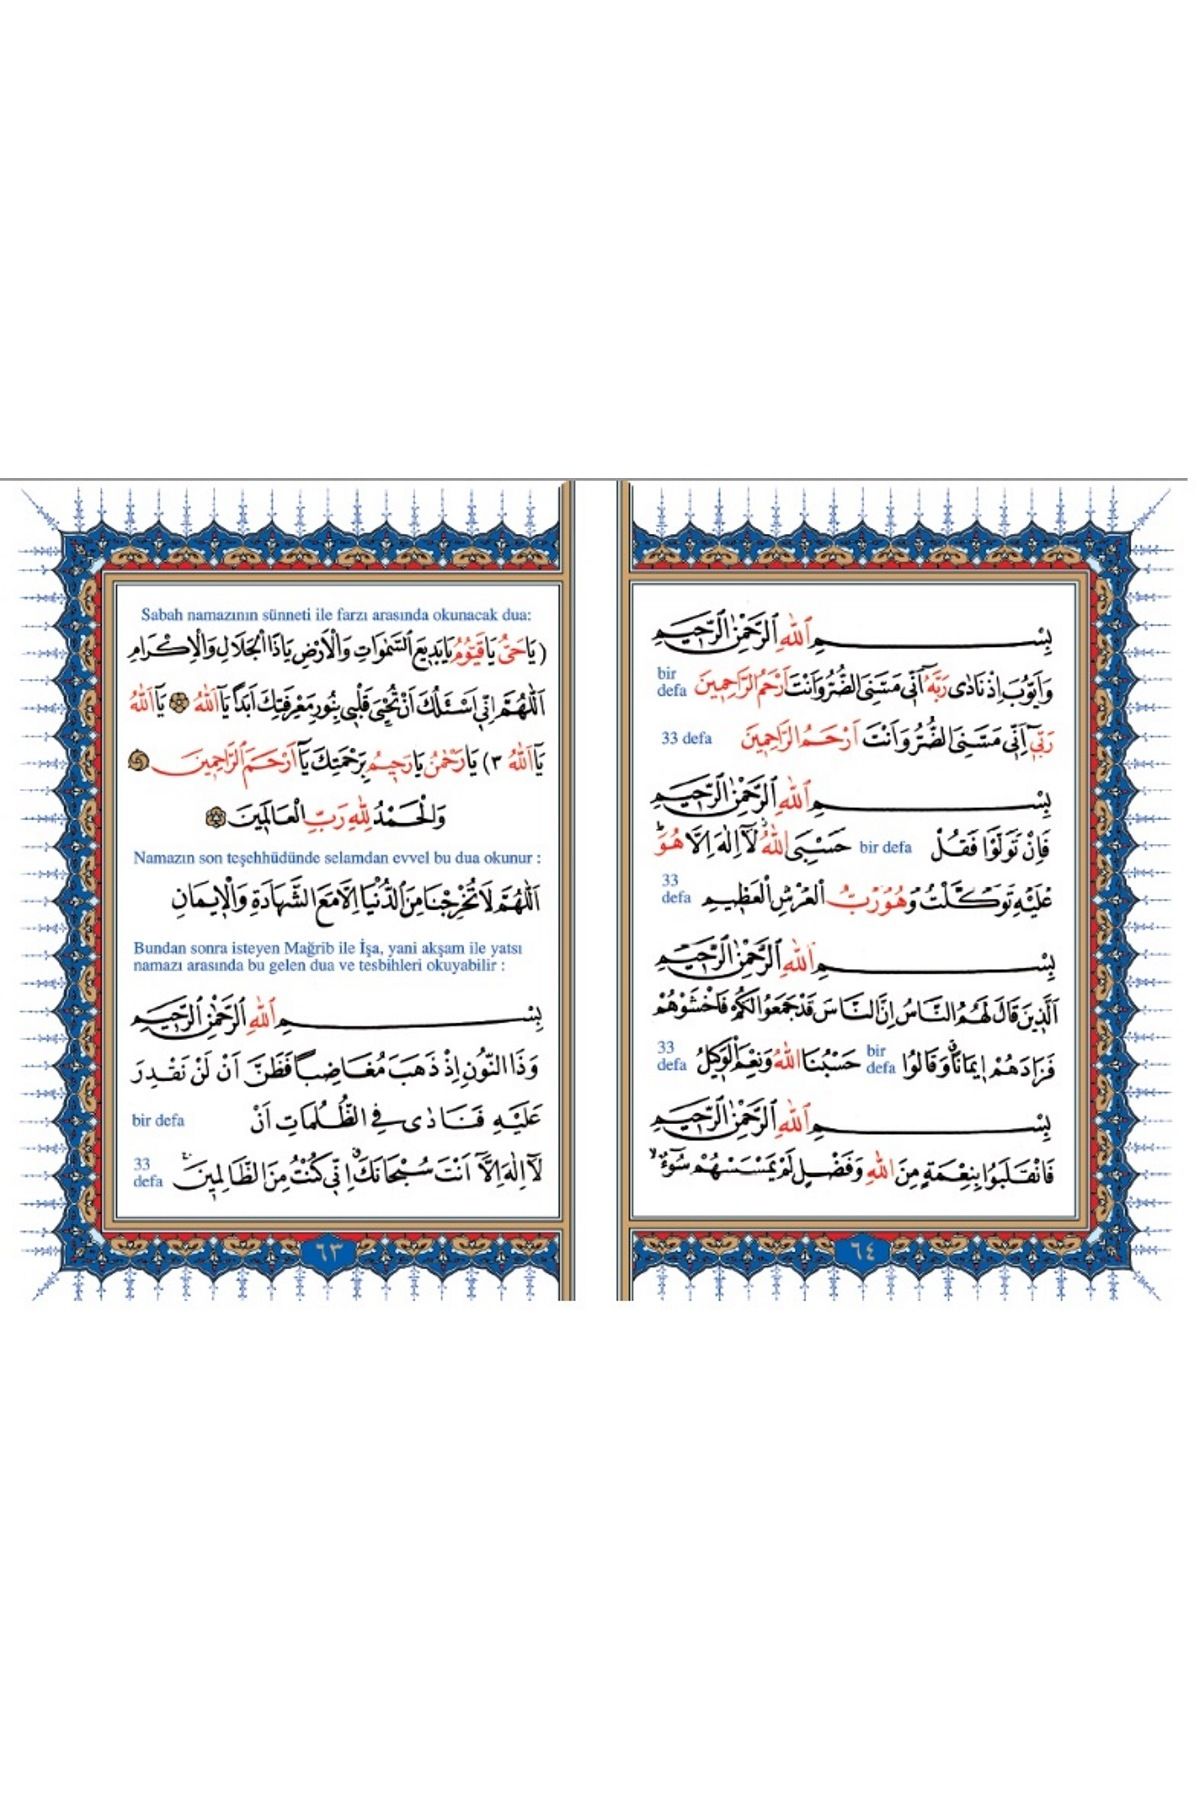 Sabah namazının sünneti ile farzı arasında okunacak dua:
(يَا حَىُّ يَا قَيُّومُ يَا بَدٖيعَ السَّمٰوَاتِ وَالْاَرْضِ يَا ذَا الْجَلَالِ وَالْاِكْرَامِ
اَللّٰهُمَّ اِنّٖى اَسْئَلُكَ اَنْ تُحْيِىَ قَلْبٖى بِنُورِ مَعْرِفَتِكَ اَبَدًا يَٓا اَللّٰهُ يَٓا اَللّٰهُ
يَٓا اَللّٰهُ ٣) يَا رَحْمٰنُ يَا رَحٖيمُ بِرَحْمَتِكَ يَٓا اَرْحَمَ الرَّاحِمٖينَ
وَالْحَمْدُ لِلّٰهِ رَبِّ الْعَالَمٖينَ
Namazın son teşehhüdünde selamdan evvel bu dua okunur :
اَللّٰهُمَّ لَا تُخْرِجْنَا مِنَ الدُّنْيَا اِلَّا مَعَ الشَّهَادَةِ وَالْاٖيمَانِ
Bundan sonra isteyen Mağrib ile İşa, yani akşam ile yatsı
namazı arasında bu gelen dua ve tesbihleri okuyabilir :
بِسْمِ اللّٰهِ الرَّحْمٰنِ الرَّحٖيمِ
وَذَا النُّونِ اِذْ ذَهَبَ مُغَاضِبًا فَظَنَّ اَنْ لَنْ نَقْدِرَ
عَلَيْهِ فَنَادٰى فِى الظُّلُمَاتِ اَنْ bir defa
لَٓا اِلٰهَ اِلَّٓا اَنْتَ سُبْحَانَكَ اِنّٖى كُنْتُ مِنَ الظَّالِمٖينَ 33 defa
٦٣
بِسْمِ اللّٰهِ الرَّحْمٰنِ الرَّحٖيمِ
وَاَيُّوبَ اِذْ نَادٰى رَبَّهُٓ اَنّٖى مَسَّنِىَ الضُّرُّ وَاَنْتَ اَرْحَمُ الرَّاحِمٖينَ bir defa
رَبِّٓ اِنّٖى مَسَّنِىَ الضُّرُّ وَاَنْتَ اَرْحَمُ الرَّاحِمٖينَ 33 defa
بِسْمِ اللّٰهِ الرَّحْمٰنِ الرَّحٖيمِ
فَاِنْ تَوَلَّوْا فَقُلْ bir defa حَسْبِىَ اللّٰهُ لَٓا اِلٰهَ اِلَّا هُوَ
عَلَيْهِ تَوَكَّلْتُ وَهُوَ رَبُّ الْعَرْشِ الْعَظٖيمِ 33 defa
بِسْمِ اللّٰهِ الرَّحْمٰنِ الرَّحٖيمِ
اَلَّذٖينَ قَالَ لَهُمُ النَّاسُ اِنَّ النَّاسَ قَدْ جَمَعُوا لَكُمْ فَاخْشَوْهُمْ
فَزَادَهُمْ اٖيمَانًا وَقَالُوا bir defa حَسْبُنَا اللّٰهُ وَنِعْمَ الْوَكٖيلُ 33 defa
بِسْمِ اللّٰهِ الرَّحْمٰنِ الرَّحٖيمِ
فَانْقَلَبُوا بِنِعْمَةٍ مِنَ اللّٰهِ وَفَضْلٍ لَمْ يَمْسَسْهُمْ سُٓوءٌ
٦٤